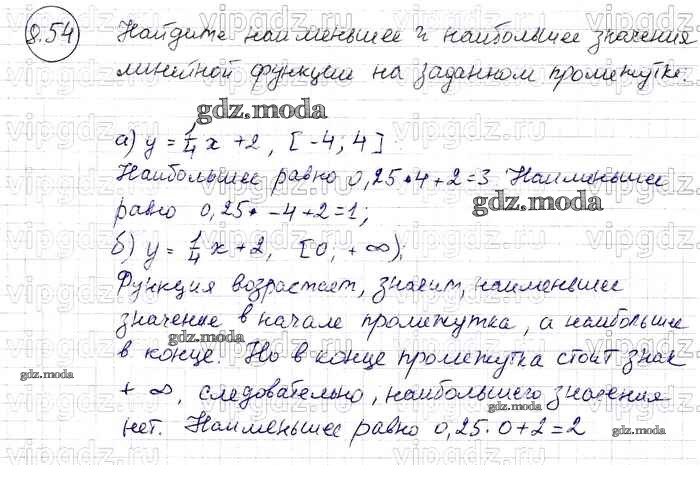 8.54 Найдите наименьшее и наибольшее значения
линейной функции на заданном промежутке.
gdz.moda
а) y = 1/4 x + 2, [-4; 4]
Наибольшее равно 0,25•4+2=3 Наименьшее
gdz.moda
равно 0,25• -4+2=1;
б) y = 1/4 x + 2, [0, +∞);
Функция возрастает, значит, наименьшее
значение в начале промежутка, а наибольшее
gdz.moda
в конце. Но в конце промежутка стоит знак
gdz.moda
+ ∞, следовательно, наибольшего значения
gdz.moda
нет. Наименьшее равно 0,25·0+2=2
gdz.moda